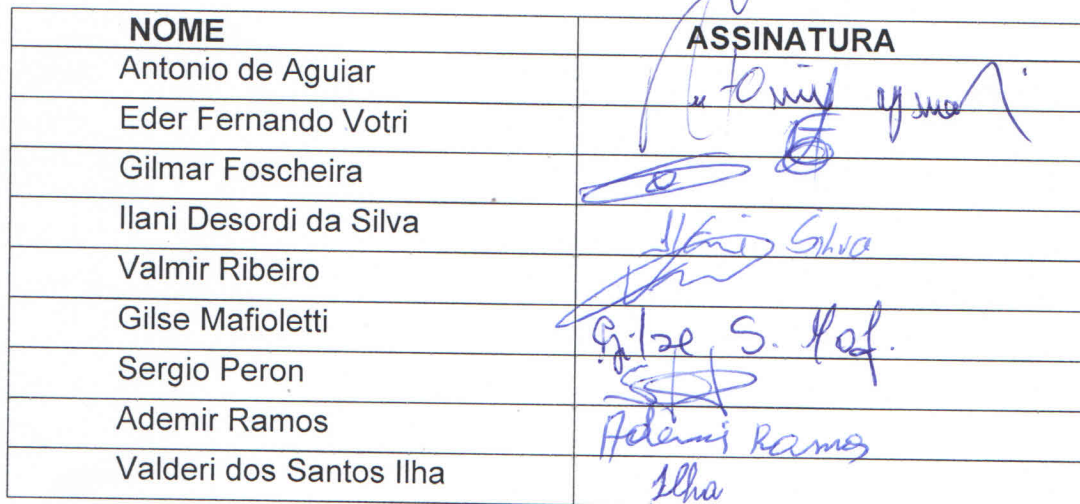 NOME ASSINATURA
Antonio de Aguiar
Eder Fernando Votri
Gilmar Foscheira
Ilani Desordi da Silva Silva
Valmir Ribeiro
Gilse Mafioletti Gilse S. Maf.
Sergio Peron
Ademir Ramos Ademir Ramos
Valderi dos Santos Ilha Ilha